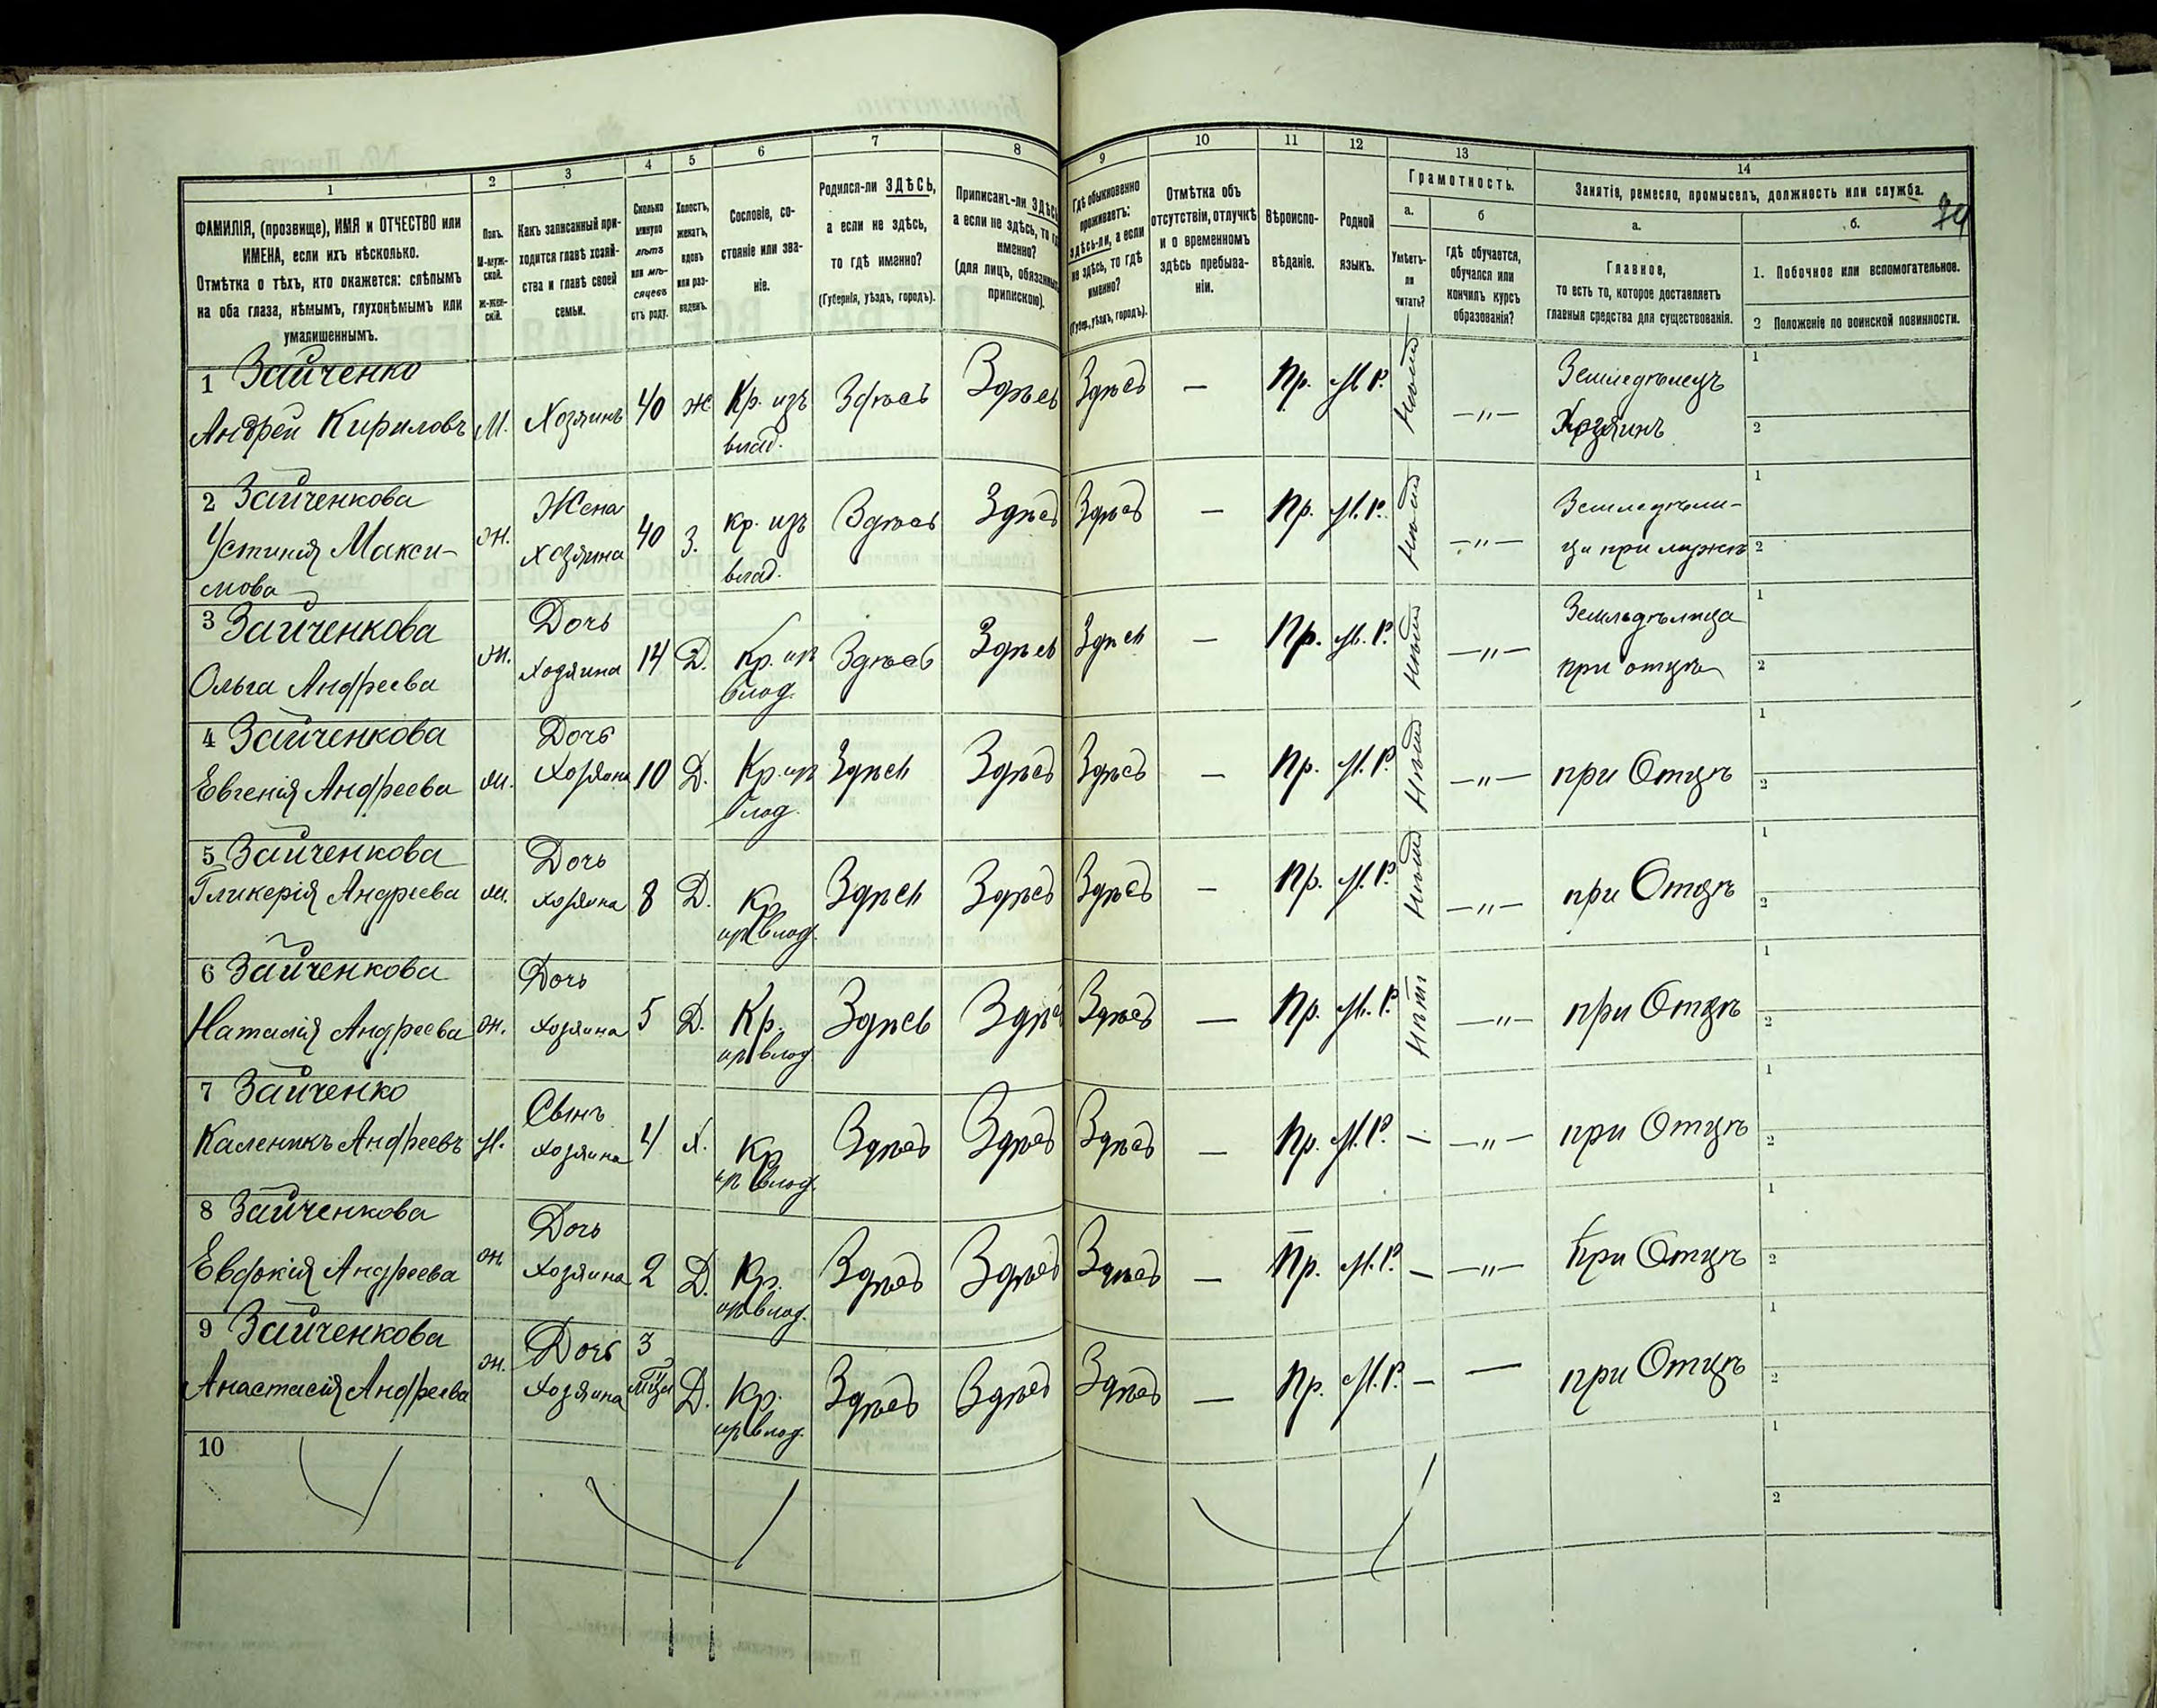 1 2 3 4 5 6 7 8 9 10 11 12 13 14
ФАМИЛІЯ, (прозвище), ИМЯ и ОТЧЕСТВО или
ИМЕНА, если ихъ нѣсколько.
Отмѣтка о тѣхъ, кто окажется: слѣпымъ
на оба глаза, нѣмымъ, глухонѣмымъ или
умалишеннымъ.
Полъ.
М-муж-
ской.
ж-жен-
скій.
Какъ записанный при-
ходится главѣ хозяй-
ства и главѣ своей
семьи.
Сколько
минуло
лѣтъ
или мѣ-
сяцевъ
отъ роду.
Холостъ,
женатъ,
вдовъ
или раз-
веденъ.
Сословіе, со-
стояніе или зва-
ніе.
Родился-ли ЗДѢСЬ,
а если не здѣсь,
то гдѣ именно?
(Губернія, уѣздъ, городъ).
Приписанъ-ли ЗДѢСЬ,
а если не здѣсь, то гдѣ
именно?
(для лицъ, обязанныхъ
припискою).
Гдѣ обыкновенно
проживаетъ:
здѣсь-ли, а если
не здѣсь, то гдѣ
именно?
(Губер., уѣздъ, городъ).
Отмѣтка объ
отсутствіи, отлучкѣ
и о временномъ
здѣсь пребыва-
ніи.
Вѣроиспо-
вѣданіе.
Родной
языкъ.
Грамотность.
а.
Умѣетъ-
ли
читать?
б
гдѣ обучается,
обучался или
кончилъ курсъ
образованія?
Занятіе, ремесло, промыселъ, должность или служба.
а.
Главное,
то есть то, которое доставляетъ
главныя средства для существованія.
б.
1. Побочное или вспомогательное.
2 Положеніе по воинской повинности.
1 Зайченко
Андрей Кириловъ М. Хозяинъ 40 ж Кр. изъ Здѣсь Здѣсь Здѣсь — Пр. М. Р. Нѣтъ —"— Земледѣлецъ 1
влад. Хозяинъ 2
2 Зайченкова Жена Земледѣли- 1
Устинія Макси- ж. хозяина 40 З. кр. изъ Здѣсь Здѣсь Здѣсь — Пр. М. Р. Нѣтъ —"— ца при мужѣ 2
мова влад.
3 Зайченкова Дочь Земледѣлица 1
Ольга Андреева ж. Хозяина 14 Д. Кр. из Здѣсь Здѣсь Здѣсь — Пр. М. Р. Нѣтъ —"— при отцѣ 2
влад.
4 Зайченкова Дочь 1
Евгенія Андреева ж. Хозяина 10 Д. Кр. из Здѣсь Здѣсь Здѣсь — Пр. М. Р. Нѣтъ —"— при Отцѣ 2
влад.
5 Зайченкова Дочь 1
Гликерія Андреева ж. Хозяина 8 Д. Кр. Здѣсь Здѣсь Здѣсь — Пр. М. Р. Нѣтъ —"— при Отцѣ 2
из влад.
6 Зайченкова Дочь 1
Наталія Андреева ж. Хозяина 5 Д. Кр. Здѣсь Здѣсь Здѣсь — Пр. М. Р. Нѣтъ —"— при Отцѣ 2
из влад
7 Зайченко Сынъ 1
Каленикъ Андреевъ М. Хозяина 4 Х. Кр Здѣсь Здѣсь Здѣсь — Пр. М. Р. — —"— при Отцѣ 2
из влад.
8 Зайченкова Дочь 1
Евдокія Андреева ж. Хозяина 2 Д. Кр. Здѣсь Здѣсь Здѣсь — Пр. М. Р. — —"— при Отцѣ 2
из влад.
9 Зайченкова Дочь 3 1
Анастасія Андреева ж. Хозяина Д. Кр. Здѣсь Здѣсь Здѣсь — Пр. М. Р. — — при Отцѣ 2
из влад.
10 1
2